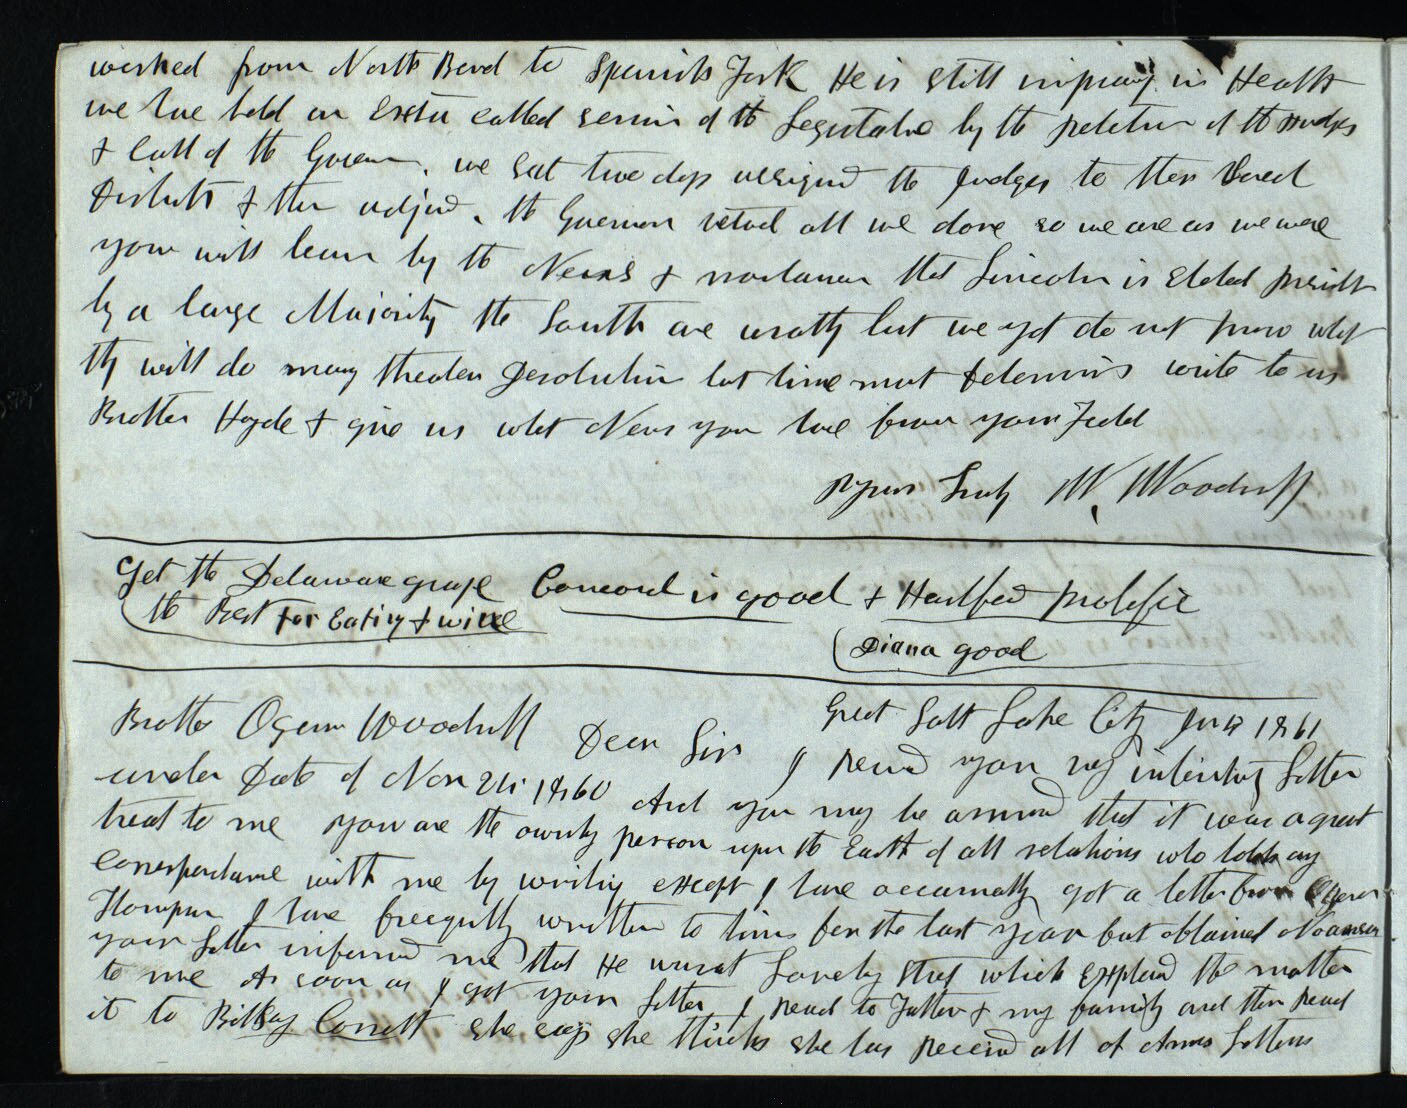 worked from North Bend to Spanish Fork He is still improving in Health
we have held an Extra called session of the Legislature by the petition of the Judges
& Call of the Governor. we sat two days assigned the Judges to their several
Districts & then adjord. the Governor vetoed all we done so we are as we were
you will learn by the News & Mountaineer that Lincoln is Elected president
by a large Majority the South are wrathy but we yet do not know what
they will do many threaten Desolution but time must determins write to us
Brother Hyde & give us what News you have from your Field
Yours Truly W. Woodruff
Get the Delaware grape Concord is good & Hartford prolific
the Best for Eating & wine
Diana good
Great Salt Lake City Jan 1861
Brother Ozem Woodruff Dear Sir I recevd your very interesting Letter
under Date of Nov 24 1860 And you may be assured that it was a great
treat to me you are the ownly person upon the Earth of all relations who holds any
correspondance with me by writing except I have occasionally got a letter from
Thompson I have freequently written to him for the last year but obtained No answer
your Letter informed me that He was at Lovely Street which Explaind the matter
to me As soon as I got your Letter I read to Father & my family and then read
it to Betsey Cossett she says she thinks she has receivd all of Anns Letters